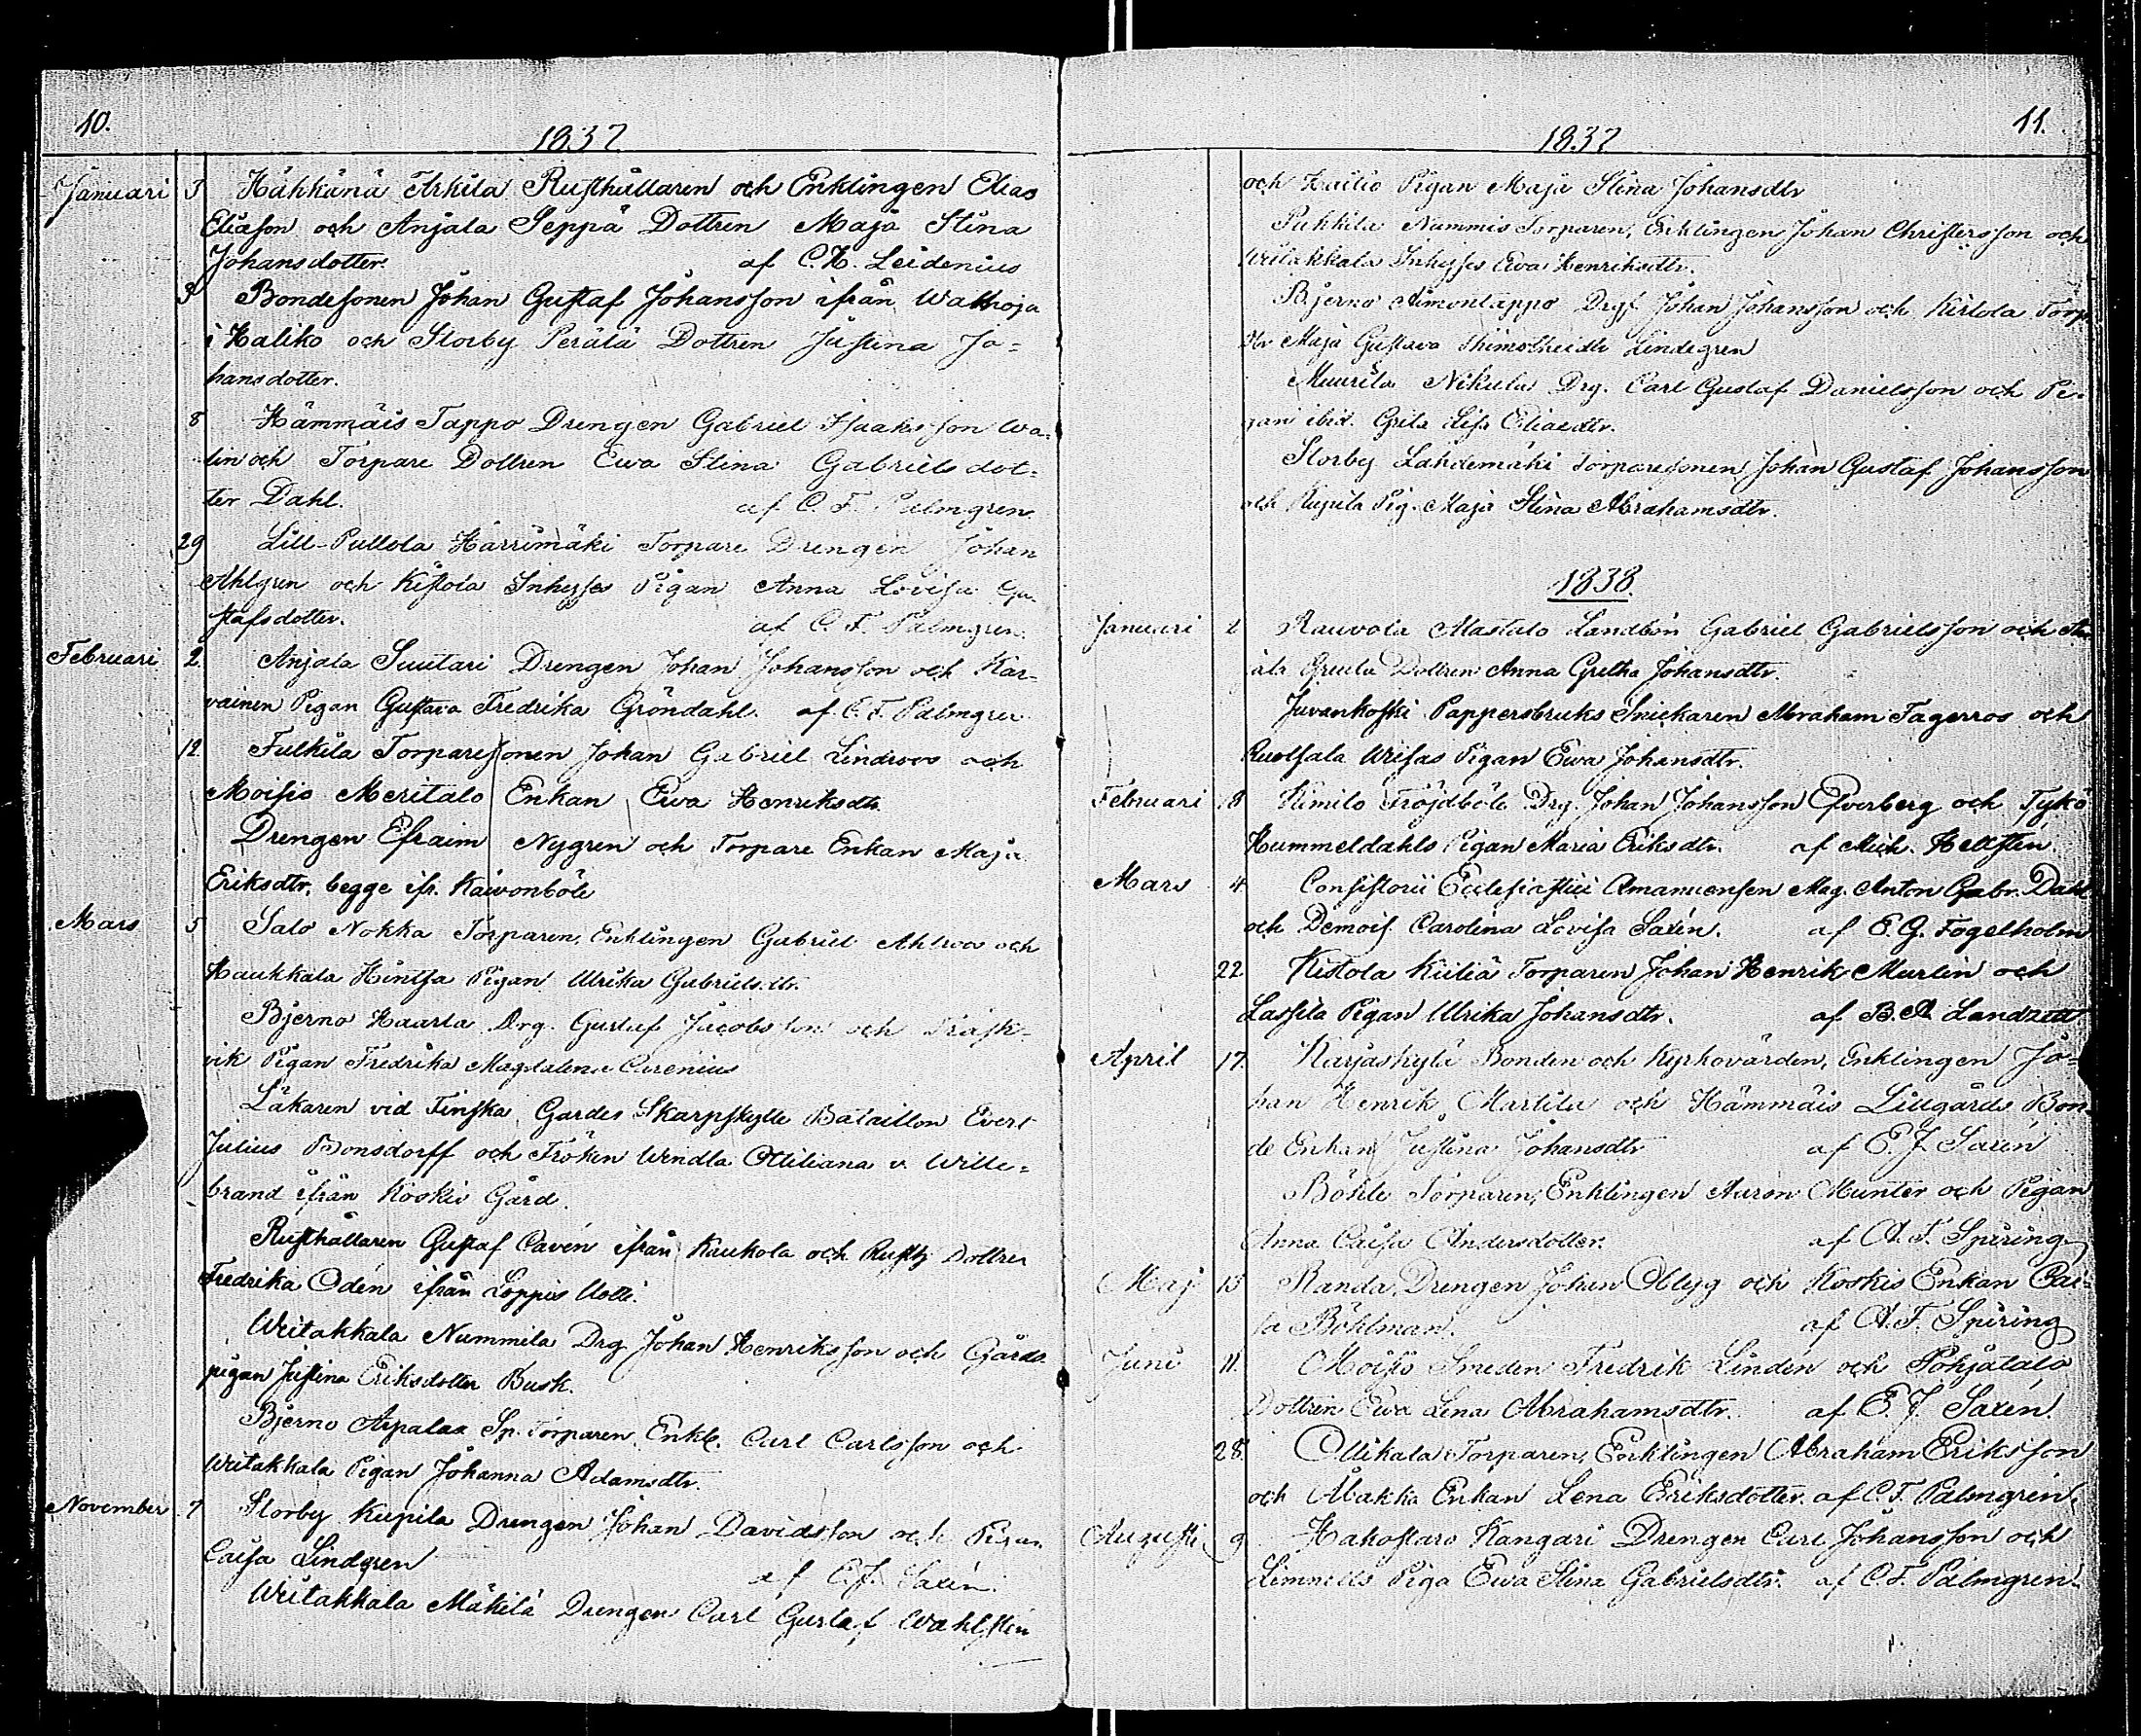 10.
1837.
Januari 3 Hähkänä Arkila Rusthållaren och Enklingen Elias
Eliasson och Anjala Seppä Dottren Maja Stina
Johansdotter. af C. H. Leidenius
3 Bondesonen Johan Gustaf Johansson ifrån Walkoja
i Haliko och Storby Perälä Dottren Justina Jo=
hansdotter.
8 Hämmäis Tappo Drengen Gabriel Isaaksson Wa=
lin och Torpare Dottren Ewa Stina Gabriels dot=
ter Dahl. af C. F. Palmgren.
29 Lill-Pullola Härrimäki Torpare Drengen Johan
Ahlgren och Kistola Inhyses Pigan Anna Lovisa Gu
stafsdotter. af C. F. Palmgren.
Februari 2. Anjala Suutari Drengen Johan Johansson och Kar=
vainen Pigan Gustava Fredrika Gröndahl. af C. F. Palmgren
12. Fulkila Torparesonen Johan Gabriel Lindroos och
Moisio Meritalo Enkan Ewa Henriksdtr.
Drengen Efraim Nygren och Torpare Enkan Maja
Eriksdtr, begge ifr. Kaivonböle
Mars 5 Salo Nokka Torparen, Enklingen Gabriel Ahlroos och
Haukkala Hintsa Pigan Ulrika Gabrielsdtr.
Bjerno Haarla Drg. Gustaf Jacobsson och Träsk=
vik Pigan Fredrika Magdalena Curenius
Läkaren vid Finska Gardes Skarpskytte Bataillon Evert
Julius Bonsdorff och Fröken Wendla Ottiliana v. Wille=
brand ifrån Koskis Gård.
Rusthållaren Gustaf Cavén ifrån Kaukola och Rusth. Dottren
Fredrika Odén ifrån Loppis Uotti.
Wiitakkala Nummila Drg Johan Henriksson och Gårds
pigan Justina Eriksdotter Busk.
Bjerno Arpalax Sp. Torparen Enkl. Carl Carlsson och
Wiitakkala Pigan Johanna Adamsdtr.
November 7 Storby Kupila Drengen Johan Davidsson och Pigan
Caisa Lindgren af E. J. Saxén.
Wiitakkala Mäkilä Drengen Carl Gustaf Wahlstén
11.
1837
och Kailio Pigan Maja Stina Johansdtr
Pukkila Nummis Torparen, Enklingen Johan Christersson och
Wiitakkala Inhyses Ewa Henriksdtr.
Bjerno Aimontappo Drg. Johan Johansson och Kistola Torp.
Maja Gustava Lindegren
Muurila Nikula Drg. Carl Gustaf Danielsson och Pi=
gan ibid. Greta Lisa Eliaedtr.
Storby Lähdemäki Torparesonen Johan Gustaf Johansson
och Kupila Pig. Maja Stina Abrahamsdtr.
1838.
Januari 2 Rauvola Alastalo Landbon Gabriel Gabrielsson och
Dottren Anna Gretha Johansdtr.
Juvankoski Pappersbruks Snickaren Abraham Tagerros och
Ruotsala Urisas Pigan Ewa Johansdtr.
Februari 18 Kimito Fröjdböle Drg. Johan Johansson Öfverberg och Tykö
Hummeldahls Pigan Maria Eriksdtr. af Mich. Hellstén.
Mars 4 Consistorii Ecclesiastici Amanuensen Mag. Anton Gabr. Dahl
och Demois. Carolina Lovisa Saxén. af E. G. Fogelholm
22 Kistola Kiiliä Torparen Johan Henrik Murlin och
Lassila Pigan Ulrika Johansdtr. af B. A. Landzett
April 17. Karjaskylä Bonden och Kyrkovärden, Enklingen Jo=
han Henrik Martila och Hämmäis Lillgårds Bon
de Enkan Justina Johansdtr af E. J. Saxén
Böhle Torparen, Enklingen Aaron Munter och Pigan
Anna Caisa Andersdotter. af A. F. Spiring
Maj 13 Randa Drengen Johan Oblyg och Koskis Enkan Cai=
sa Böhlman. af A. F. Spiring
Juni 11. Moisio Smeden Fredrik Lindén och Pohjatalo
Dottren Ewa Lena Abrahamsdtr. af E. J. Saxén.
28. Ollikala Torparen, Enklingen Abraham Eriksson
och Åbakka Enkan Lena Eriksdotter. af C. F. Palmgren.
Augusti 9 Hakostaro Kangari Drengen Carl Johansson och
Piga Ewa Stina Gabrielsdtr. af C. F. Palmgren.